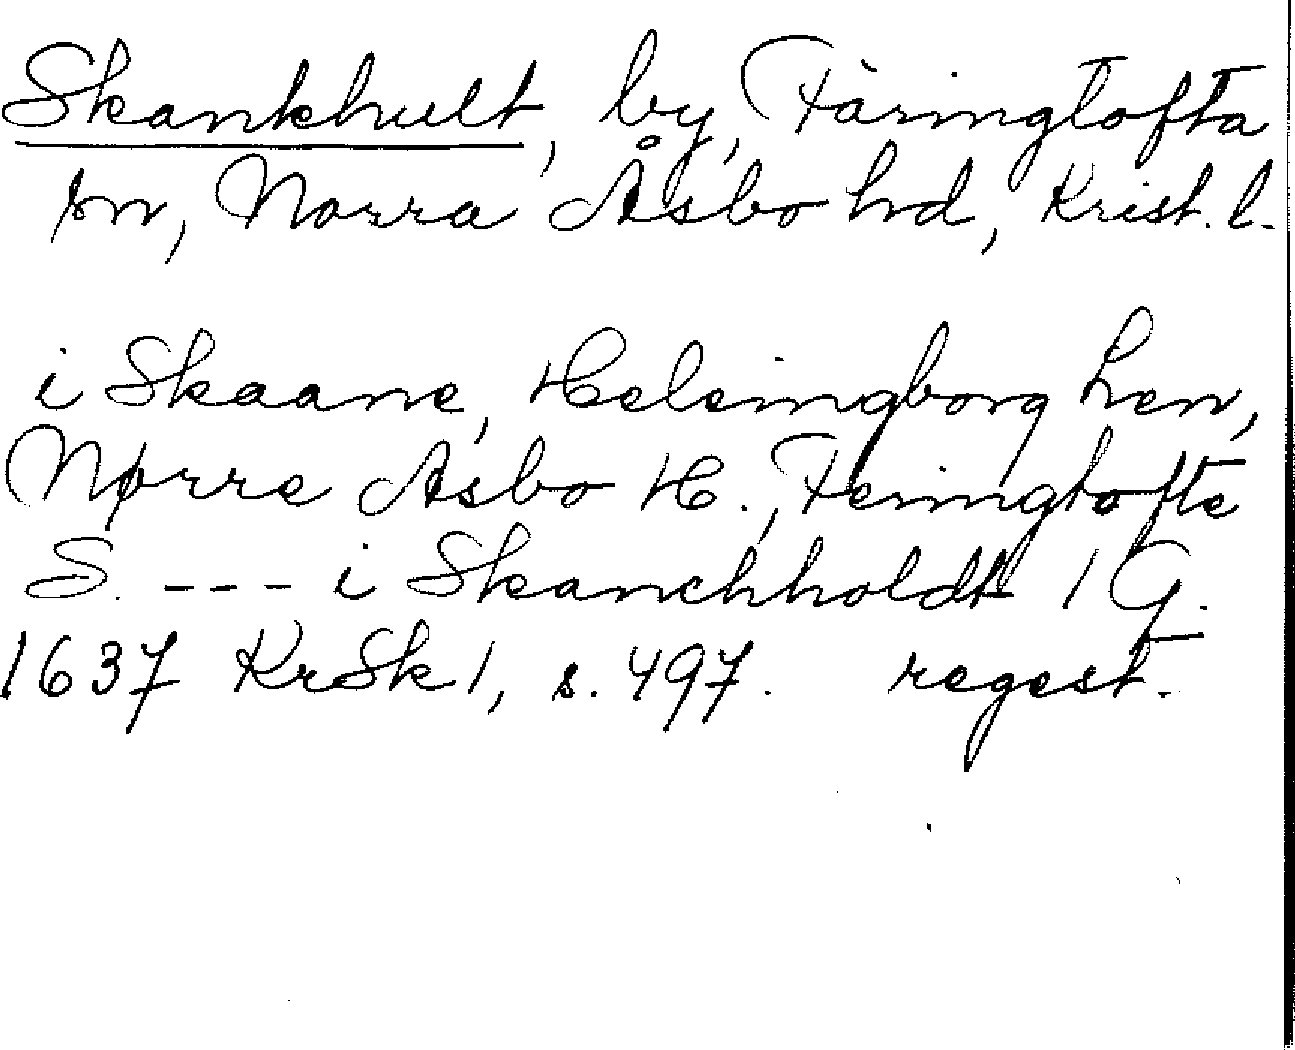 Skankhult, by, Färingtofta
sn, Norra Åsbo hd, Krist. l.
i Skaane, Helsingborg Len,
Nørre Asbo H., Feringtofte
S. --- i Skanchholdt 1 G.
1637 KrSk 1, s. 497. regest.